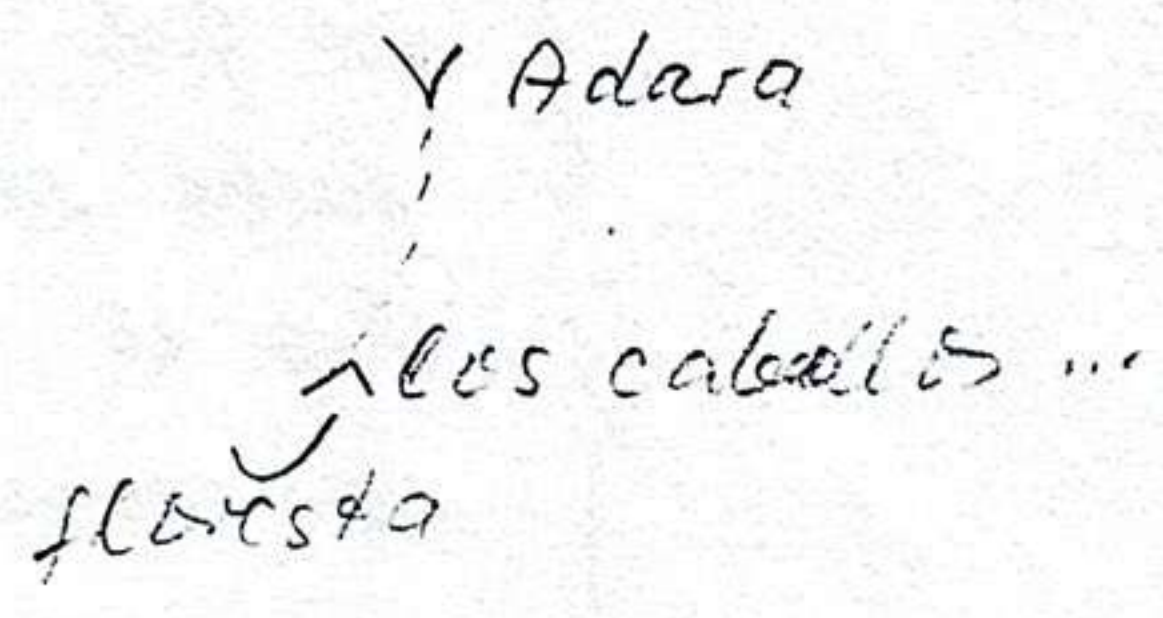 Adara
los caballos ...
floresta